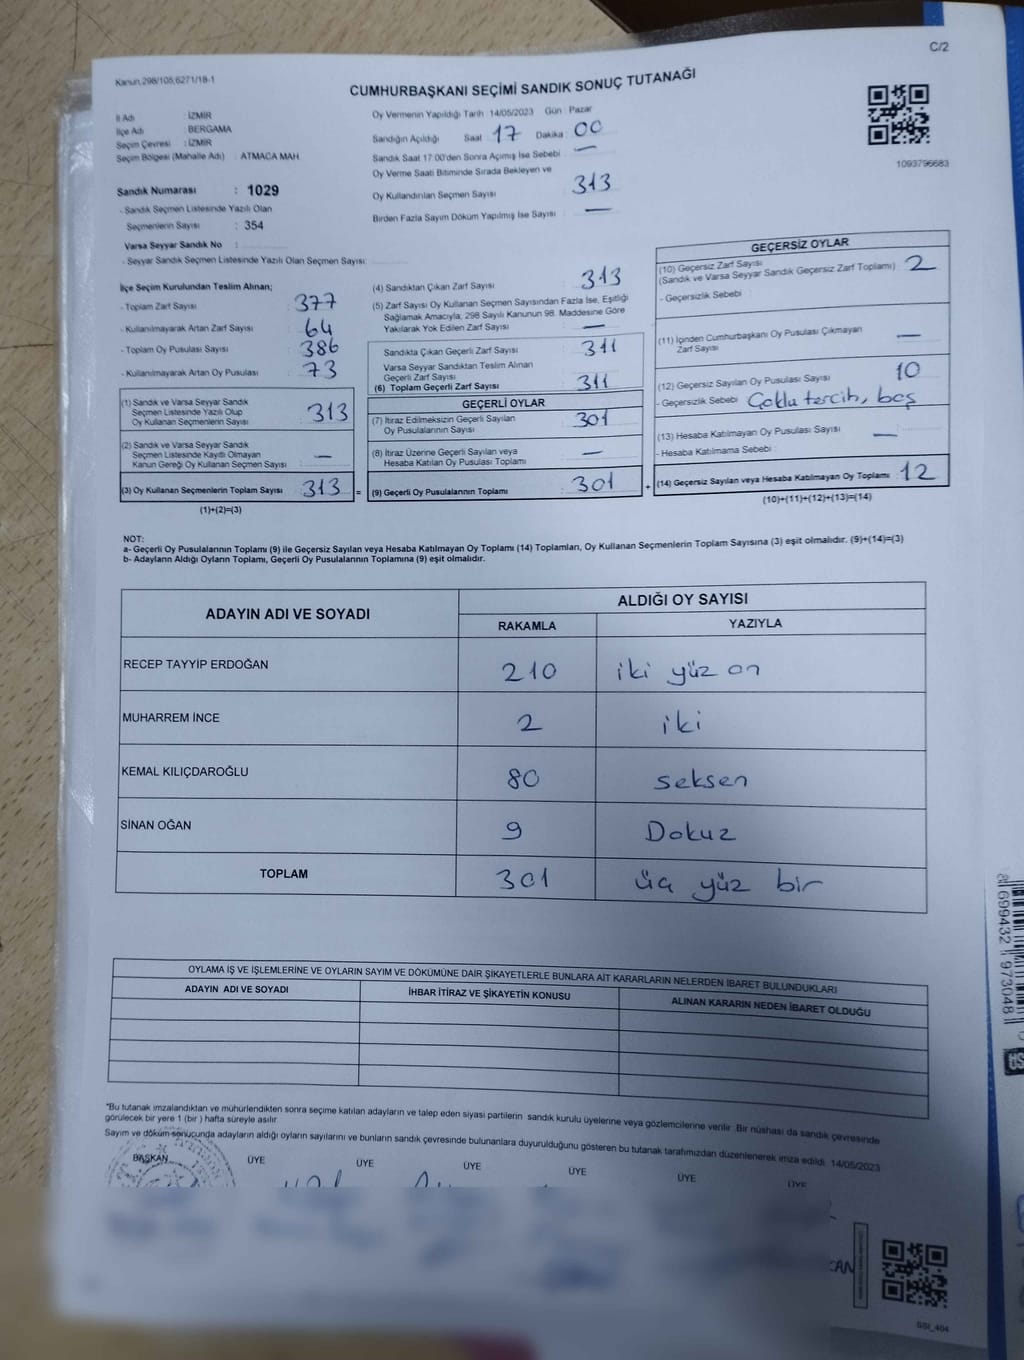 C/2
Kanun,298/105,6271/18-1
CUMHURBAŞKANI SEÇİMİ SANDIK SONUÇ TUTANAĞI
İl Adı : İZMİR
İlçe Adı : BERGAMA
Seçim Çevresi : İZMİR
Seçim Bölgesi (Mahalle Adı) : ATMACA MAH.
Sandık Numarası : 1029
- Sandık Seçmen Listesinde Yazılı Olan
Seçmenlerin Sayısı : 354
Varsa Seyyar Sandık No :
- Seyyar Sandık Seçmen Listesinde Yazılı Olan Seçmen Sayısı:
Oy Vermenin Yapıldığı Tarih 14/05/2023 Gün : Pazar
Sandığın Açıldığı Saat 17 Dakika : 00
Sandık Saat 17:00'den Sonra Açımış İse Sebebi : —
Oy Verme Saati Bitiminde Sırada Bekleyen ve
Oy Kullandırılan Seçmen Sayısı 313
Birden Fazla Sayım Döküm Yapılmış İse Sayısı : —
1093796683
İlçe Seçim Kurulundan Teslim Alınan;
- Toplam Zarf Sayısı : 377
- Kullanılmayarak Artan Zarf Sayısı : 64
- Toplam Oy Pusulası Sayısı : 386
- Kullanılmayarak Artan Oy Pusulası : 73
(1) Sandık ve Varsa Seyyar Sandık
Seçmen Listesinde Yazılı Olup
Oy Kullanan Seçmenlerin Sayısı : 313
(2) Sandık ve Varsa Seyyar Sandık
Seçmen Listesinde Kayıtlı Olmayan
Kanun Gereği Oy Kullanan Seçmen Sayısı : —
(3) Oy Kullanan Seçmenlerin Toplam Sayısı : 313 =
(1)+(2)=(3)
(4) Sandıktan Çıkan Zarf Sayısı : 313
(5) Zarf Sayısı Oy Kullanan Seçmen Sayısından Fazla İse, Eşitliği
Sağlamak Amacıyla, 298 Sayılı Kanunun 98. Maddesine Göre
Yakılarak Yok Edilen Zarf Sayısı : —
Sandıkta Çıkan Geçerli Zarf Sayısı : 311
Varsa Seyyar Sandıktan Teslim Alınan
Geçerli Zarf Sayısı
(6) Toplam Geçerli Zarf Sayısı : 311
GEÇERLİ OYLAR
(7) İtiraz Edilmeksizin Geçerli Sayılan
Oy Pusulalarının Sayısı : 301
(8) İtiraz Üzerine Geçerli Sayılan veya
Hesaba Katılan Oy Pusulası Toplamı : —
(9) Geçerli Oy Pusulalarının Toplamı : 301 +
GEÇERSİZ OYLAR
(10) Geçersiz Zarf Sayısı
(Sandık ve Varsa Seyyar Sandık Geçersiz Zarf Toplamı) : 2
- Geçersizlik Sebebi :
(11) İçinden Cumhurbaşkanı Oy Pusulası Çıkmayan
Zarf Sayısı : —
(12) Geçersiz Sayılan Oy Pusulası Sayısı : 10
- Geçersizlik Sebebi : Çoklu tercih, boş
(13) Hesaba Katılmayan Oy Pusulası Sayısı : —
- Hesaba Katılmama Sebebi :
(14) Geçersiz Sayılan veya Hesaba Katılmayan Oy Toplamı : 12
(10)+(11)+(12)+(13)=(14)
NOT:
a- Geçerli Oy Pusulalarının Toplamı (9) ile Geçersiz Sayılan veya Hesaba Katılmayan Oy Toplamı (14) Toplamları, Oy Kullanan Seçmenlerin Toplam Sayısına (3) eşit olmalıdır. (9)+(14)=(3)
b- Adayların Aldığı Oyların Toplamı, Geçerli Oy Pusulalarının Toplamına (9) eşit olmalıdır.
ADAYIN ADI VE SOYADI ALDIĞI OY SAYISI
RAKAMLA YAZIYLA
RECEP TAYYİP ERDOĞAN 210 iki yüz on
MUHARREM İNCE 2 iki
KEMAL KILIÇDAROĞLU 80 seksen
SİNAN OĞAN 9 Dokuz
TOPLAM 301 üç yüz bir
OYLAMA İŞ VE İŞLEMLERİNE VE OYLARIN SAYIM VE DÖKÜMÜNE DAİR ŞİKAYETLERLE BUNLARA AİT KARARLARIN NELERDEN İBARET BULUNDUKLARI
ADAYIN ADI VE SOYADI İHBAR İTİRAZ VE ŞİKAYETİN KONUSU ALINAN KARARIN NEDEN İBARET OLDUĞU
*Bu tutanak imzalandıktan ve mühürlendikten sonra seçime katılan adayların ve talep eden siyasi partilerin sandık kurulu üyelerine veya gözlemcilerine verilir. Bir nüshası da sandık çevresinde
görülecek bir yere 1 (bir ) hafta süreyle asılır.
Sayım ve döküm sonucunda adayların aldığı oyların sayılarını ve bunların sandık çevresinde bulunanlara duyurulduğunu gösteren bu tutanak tarafımızdan düzenlenerek imza edildi. 14/05/2023
BAŞKAN ÜYE ÜYE ÜYE ÜYE ÜYE ÜYE
699432 973048